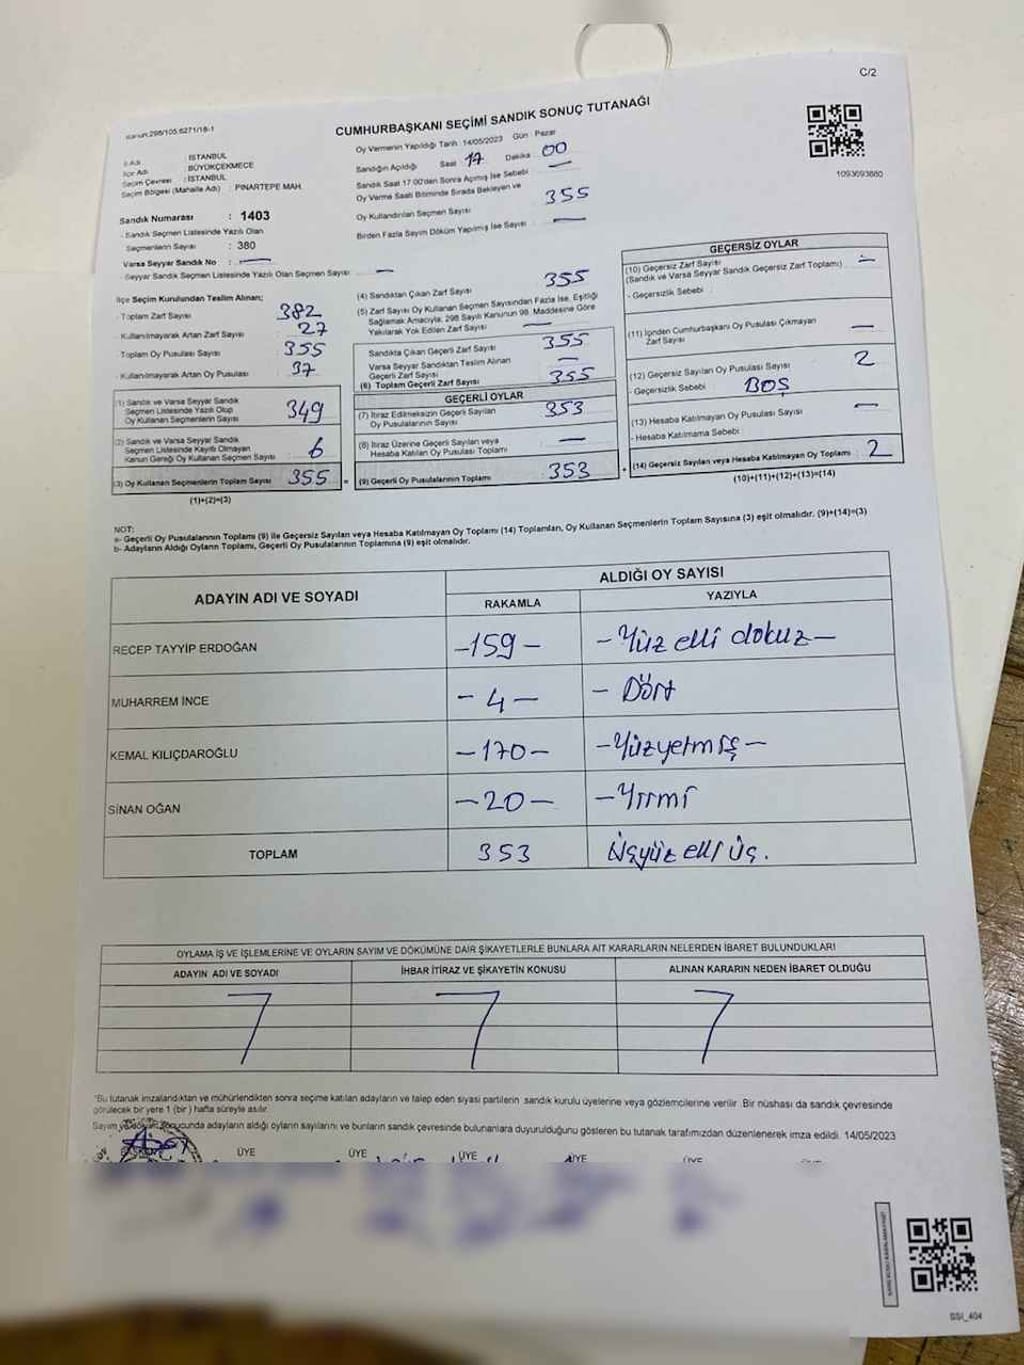 C/2
Kanun:298/105,6271/18-1
CUMHURBAŞKANI SEÇİMİ SANDIK SONUÇ TUTANAĞI
1093693880
İl Adı : İSTANBUL
İlçe Adı : BÜYÜKÇEKMECE
Seçim Çevresi : İSTANBUL
Seçim Bölgesi (Mahalle Adı) : PINARTEPE MAH.
Sandık Numarası : 1403
- Sandık Seçmen Listesinde Yazılı Olan
Seçmenlerin Sayısı : 380
Varsa Seyyar Sandık No : —
- Seyyar Sandık Seçmen Listesinde Yazılı Olan Seçmen Sayısı: —
Oy Vermenin Yapıldığı Tarih :14/05/2023 Gün : Pazar
Sandığın Açıldığı Saat : 17 Dakika : 00
Sandık Saat 17:00'dan Sonra Açılmış İse Sebebi —
Oy Verme Saati Bitiminde Sırada Bekleyen ve
Oy Kullandırılan Seçmen Sayısı 355
Birden Fazla Sayım Döküm Yapılmış İse Sayısı : —
İlçe Seçim Kurulundan Teslim Alınan;
- Toplam Zarf Sayısı 382
- Kullanılmayarak Artan Zarf Sayısı 27
Toplam Oy Pusulası Sayısı 355
- Kullanılmayarak Artan Oy Pusulası 37
(1) Sandık ve Varsa Seyyar Sandık
Seçmen Listesinde Yazılı Olup
Oy Kullanan Seçmenlerin Sayısı 349
(2) Sandık ve Varsa Seyyar Sandık
Seçmen Listesinde Kayıtlı Olmayan
Kanun Gereği Oy Kullanan Seçmen Sayısı 6
(3) Oy Kullanan Seçmenlerin Toplam Sayısı 355 =
(1)+(2)=(3)
(4) Sandıktan Çıkan Zarf Sayısı 355
(5) Zarf Sayısı Oy Kullanan Seçmen Sayısından Fazla İse, Eşitliği
Sağlamak Amacıyla, 298 Sayılı Kanunun 98. Maddesine Göre
Yakılarak Yok Edilen Zarf Sayısı —
Sandıkta Çıkan Geçerli Zarf Sayısı 355
Varsa Seyyar Sandıktan Teslim Alınan
Geçerli Zarf Sayısı —
(6) Toplam Geçerli Zarf Sayısı 355
GEÇERLİ OYLAR
(7) İtiraz Edilmeksizin Geçerli Sayılan
Oy Pusulalarının Sayısı 353
(8) İtiraz Üzerine Geçerli Sayılan veya
Hesaba Katılan Oy Pusulası Toplamı —
(9) Geçerli Oy Pusulalarının Toplamı 353 +
GEÇERSİZ OYLAR
(10) Geçersiz Zarf Sayısı
(Sandık ve Varsa Seyyar Sandık Geçersiz Zarf Toplamı) —
- Geçersizlik Sebebi :
(11) İçinden Cumhurbaşkanı Oy Pusulası Çıkmayan
Zarf Sayısı —
(12) Geçersiz Sayılan Oy Pusulası Sayısı 2
- Geçersizlik Sebebi : BOŞ
(13) Hesaba Katılmayan Oy Pusulası Sayısı —
- Hesaba Katılmama Sebebi :
(14) Geçersiz Sayılan veya Hesaba Katılmayan Oy Toplamı 2
(10)+(11)+(12)+(13)=(14)
NOT:
a- Geçerli Oy Pusulalarının Toplamı (9) ile Geçersiz Sayılan veya Hesaba Katılmayan Oy Toplamı (14) Toplamları, Oy Kullanan Seçmenlerin Toplam Sayısına (3) eşit olmalıdır. (9)+(14)=(3)
b- Adayların Aldığı Oyların Toplamı, Geçerli Oy Pusulalarının Toplamına (9) eşit olmalıdır.
ADAYIN ADI VE SOYADI
ALDIĞI OY SAYISI
RAKAMLA YAZIYLA
RECEP TAYYİP ERDOĞAN -159- -Yüz elli dokuz-
MUHARREM İNCE -4- -Dört
KEMAL KILIÇDAROĞLU -170- -Yüzyetmiş-
SİNAN OĞAN -20- -Yirmi
TOPLAM 353 Üçyüz elli üç.
OYLAMA İŞ VE İŞLEMLERİNE VE OYLARIN SAYIM VE DÖKÜMÜNE DAİR ŞİKAYETLERLE BUNLARA AİT KARARLARIN NELERDEN İBARET BULUNDUKLARI
ADAYIN ADI VE SOYADI İHBAR İTİRAZ VE ŞİKAYETİN KONUSU ALINAN KARARIN NEDEN İBARET OLDUĞU
"Bu tutanak imzalandıktan ve mühürlendikten sonra seçime katılan adayların ve talep eden siyasi partilerin sandık kurulu üyelerine veya gözlemcilerine verilir. Bir nüshası da sandık çevresinde
görülecek bir yere 1 (bir) hafta süreyle asılır.
Sayım ve döküm sonucunda adayların aldığı oyların sayılarını ve bunların sandık çevresinde bulunanlara duyurulduğunu gösteren bu tutanak tarafımızdan düzenlenerek imza edildi. 14/05/2023
BAŞKAN ÜYE ÜYE ÜYE ÜYE ÜYE
SSI_404